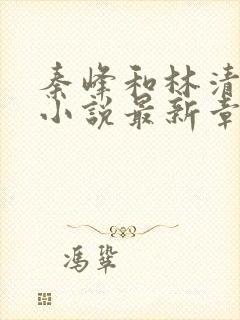 秦峰和林清
小說最新章
馮鞏